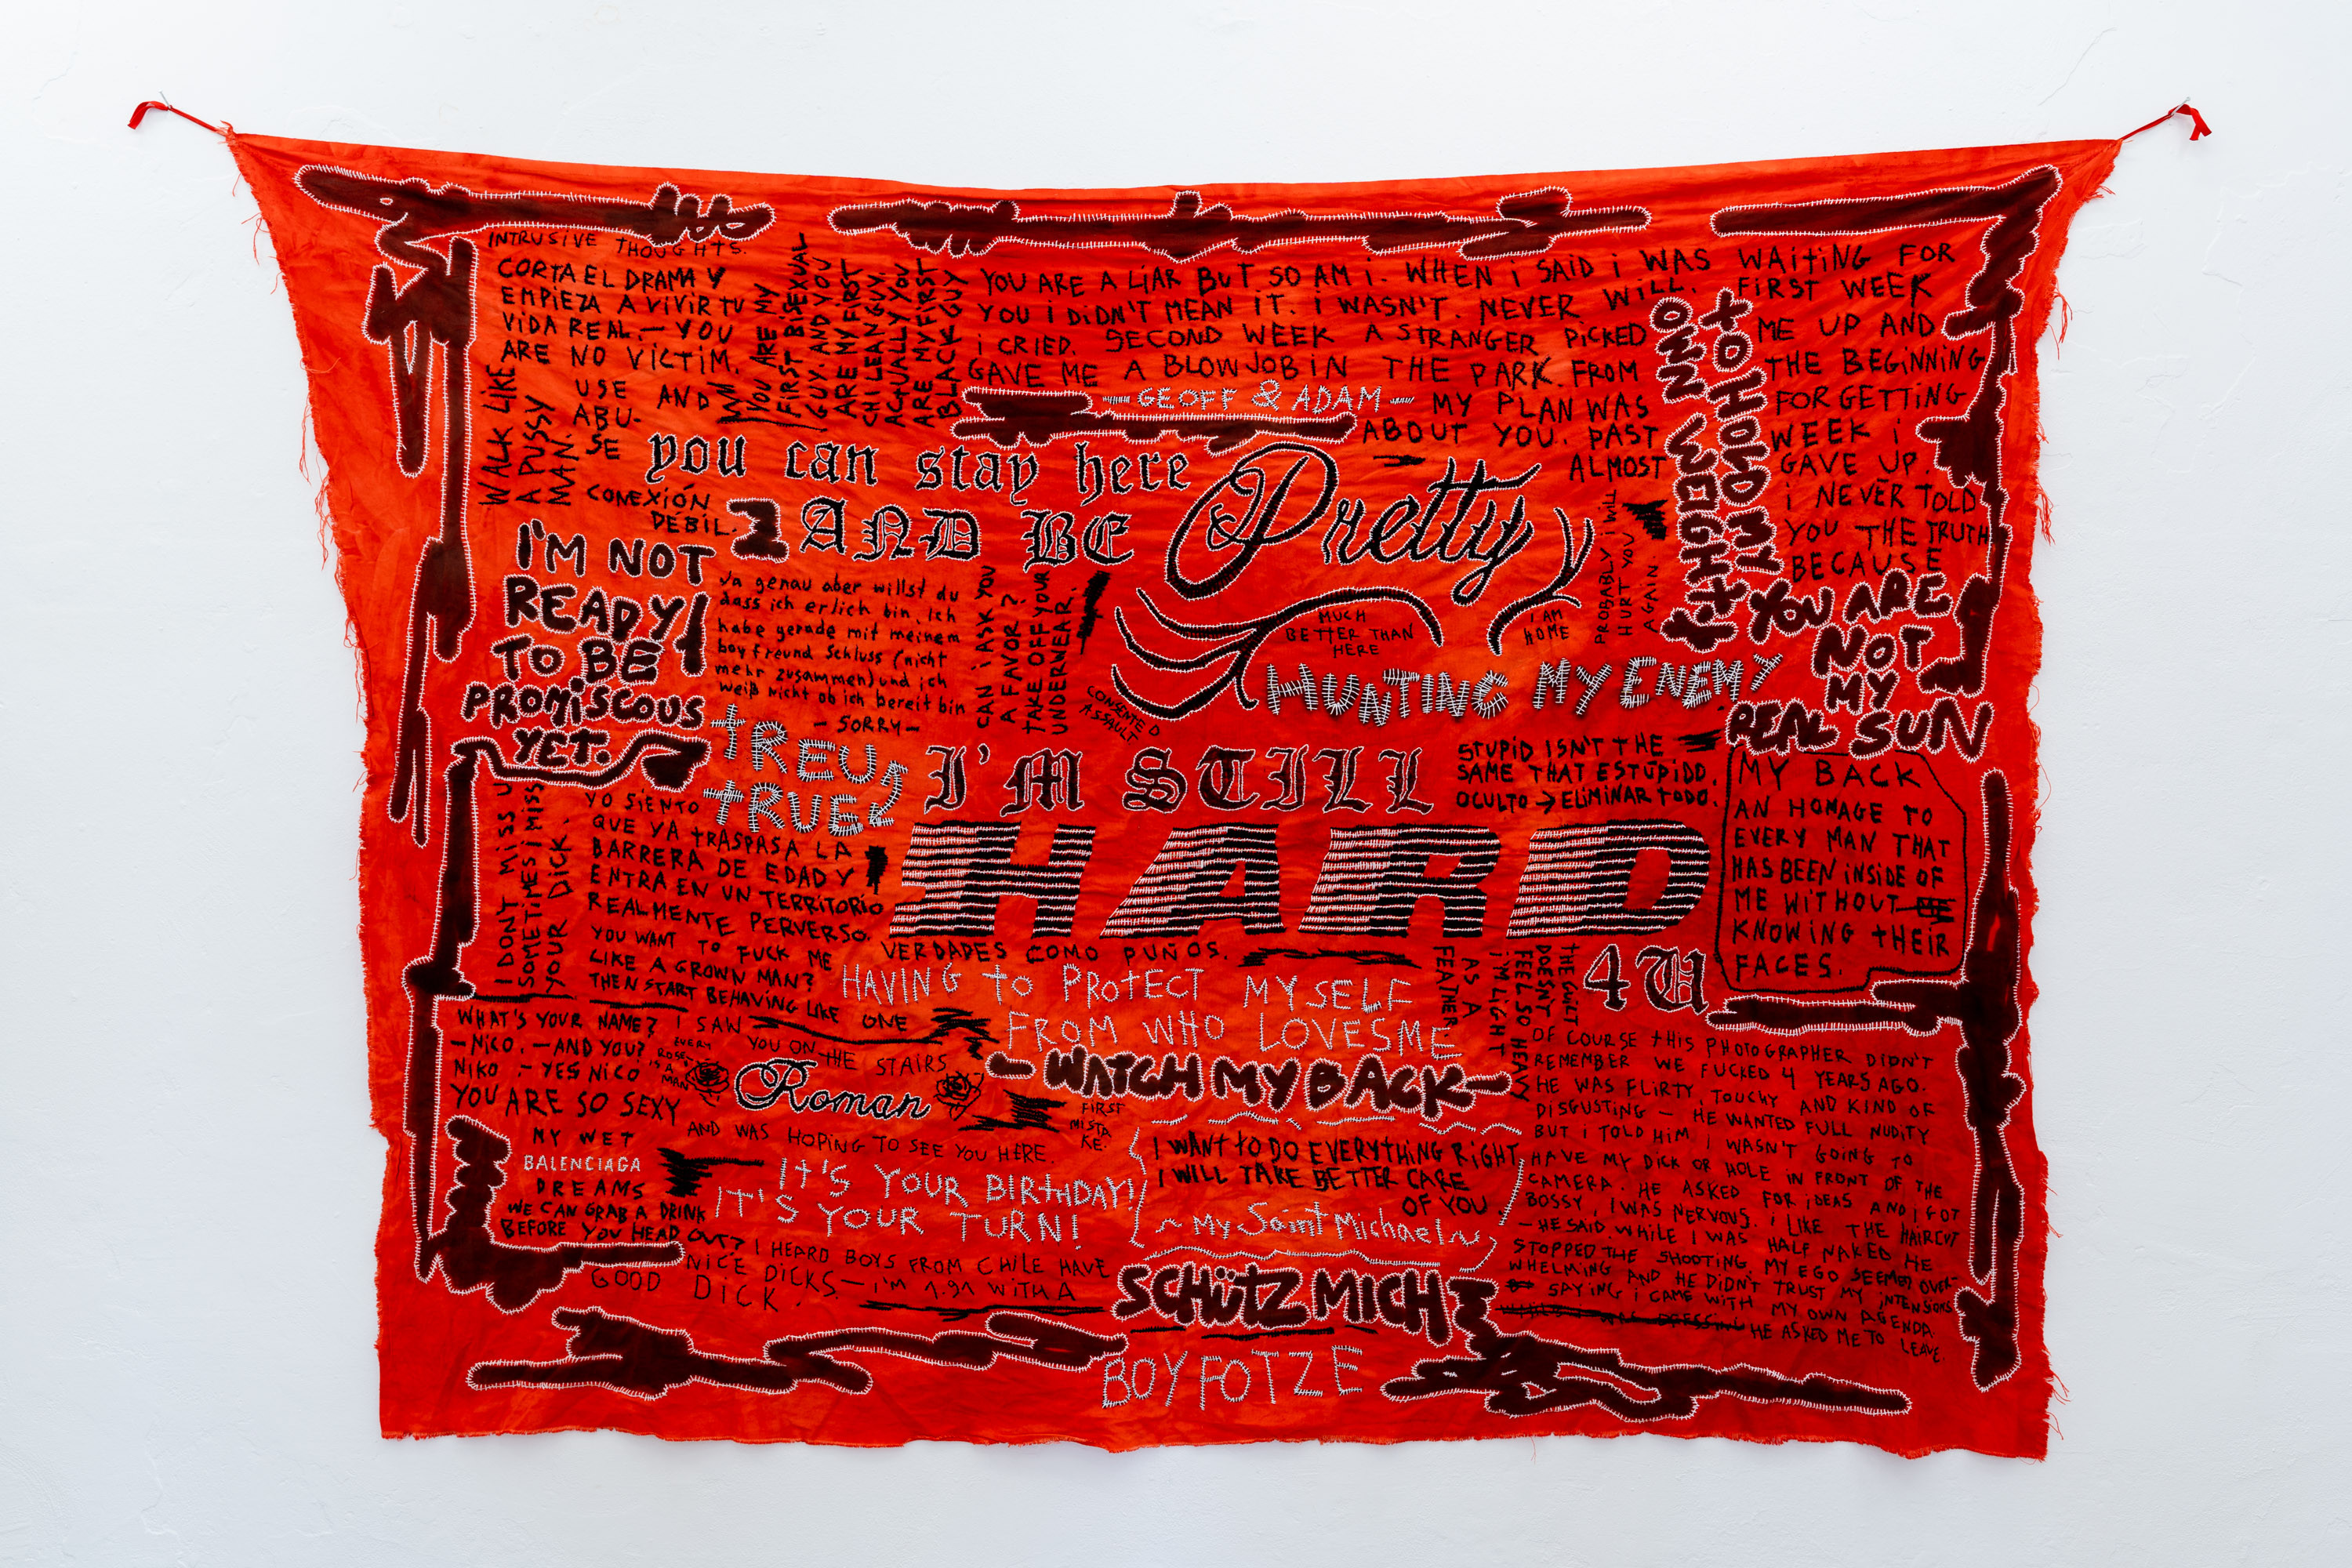 INTRUSIVE THOUGHTS.
CORTA EL DRAMA Y
EMPIEZA A VIVIR TU
VIDA REAL. — YOU
ARE NO VICTIM.
USE AND
ABU-
SE
WALK LIKE
A PUSSY
MAN.
CONEXIÓN
DÉBIL.
YOU ARE MY
FIRST BISEXUAL
GUY. AND YOU
ARE MY FIRST
CHILEAN GUY.
ACGUALLY YOU
ARE MY FIRST
BLACK GUY
YOU ARE A LIAR BUT SO AM i. WHEN i SAID i WAS WAITING FOR
YOU i DIDN'T MEAN IT. i WASN'T. NEVER WILL. FIRST WEEK
i CRIED. SECOND WEEK A STRANGER PICKED ME UP AND
GAVE ME A BLOWJOB IN THE PARK. FROM THE BEGINNING
— GEOFF & ADAM —
MY PLAN WAS FORGETTING
ABOUT YOU. PAST WEEK i
ALMOST GAVE UP.
i NEVER TOLD
YOU THE TRUTH
BECAUSE
YOU ARE
NOT
MY
REAL SUN
TO HOLD MY
OWN WEIGHT
you can stay here
AND BE
Pretty
PROBABLY I WILL
HURT YOU
AGAIN.
MUCH
BETTER THAN
HERE
I AM
HOME
I'M NOT
READY
TO BE
PROMISCOUS
YET.
Ja genau aber willst du
dass ich erlich bin. Ich
habe gerade mit meinem
boyfreund Schluss (nicht
mehr zusammen) und ich
weiß nicht ob ich bereit bin
— SORRY —
CAN i ASK YOU
A FAVOR?
TAKE OFF YOUR
UNDERWEAR.
CONSENTED
ASSAULT.
HUNTING MY ENEMY
TREU
TRUE
I'M STILL
HARD
4U
STUPID ISN'T THE
SAME THAT ESTÚPIDO.
OCULTO → ELIMINAR TODO.
MY BACK
AN HOMAGE TO
EVERY MAN THAT
HAS BEEN INSIDE OF
ME WITHOUT
KNOWING THEIR
FACES.
I DONT MISS U
SOMETIMES I MISS
YOUR DICK.
YO SIENTO
QUE YA TRASPASA LA
BARRERA DE EDAD Y
ENTRA EN UN TERRITORIO
REALMENTE PERVERSO.
YOU WANT TO FUCK ME
LIKE A GROWN MAN?
THEN START BEHAVING LIKE ONE
VERDADES COMO PUÑOS.
HAVING TO PROTECT MYSELF
FROM WHO LOVES ME
— WATCH MY BACK —
THE GUILT
DOESN'T
FEEL SO HEAVY
I'M LIGHT
AS A
FEATHER.
WHAT'S YOUR NAME?
— NICO. — AND YOU?
NIKO — YES NICO
YOU ARE SO SEXY
EVERY
ROSE
IS A
MAN
I SAW
YOU ON THE STAIRS
Roman
AND WAS HOPING TO SEE YOU HERE.
FIRST
MISTA
KE.
MY WET
BALENCIAGA
DREAMS
WE CAN GRAB A DRINK
BEFORE YOU HEAD OUT?
IT'S YOUR BIRTHDAY!
IT'S YOUR TURN!
I WANT TO DO EVERYTHING RIGHT
I WILL TAKE BETTER CARE
OF YOU
~ My Saint Michael ~
I HEARD BOYS FROM CHILE HAVE
NICE DICKS — I'M 1.91 WITH A
GOOD DICK.
SCHÜTZ MICH
BOYFOTZE
OF COURSE THIS PHOTOGRAPHER DIDN'T
REMEMBER WE FUCKED 4 YEARS AGO.
HE WAS FLIRTY, TOUCHY AND KIND OF
DISGUSTING — HE WANTED FULL NUDITY
BUT I TOLD HIM I WASN'T GOING TO
HAVE MY DICK OR HOLE IN FRONT OF THE
CAMERA. HE ASKED FOR IDEAS AND I GOT
BOSSY, I WAS NERVOUS. I LIKE THE HAIRCUT
— HE SAID WHILE I WAS HALF NAKED HE
STOPPED THE SHOOTING, MY EGO SEEMED OVER-
WHELMING AND HE DIDN'T TRUST MY INTENSIONS
SAYING I CAME WITH MY OWN AGENDA
HE ASKED ME TO LEAVE